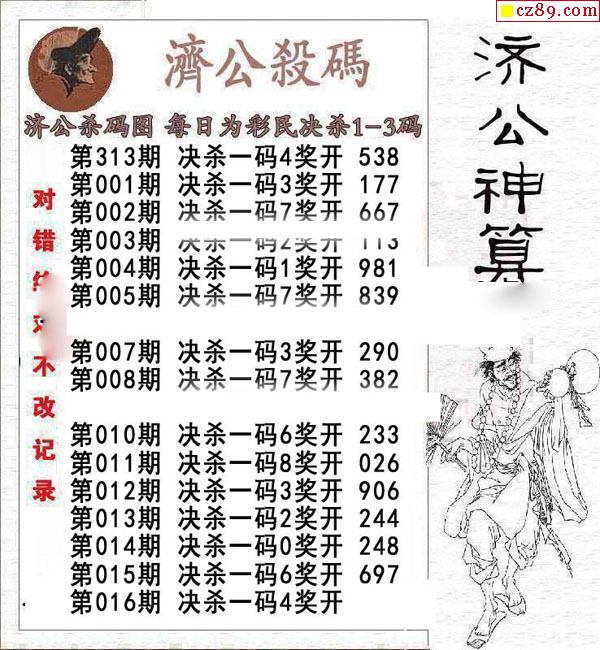 cz89.com
濟公殺碼
济公杀码图 每日为彩民决杀1-3码
第313期 决杀一码4奖开 538
第001期 决杀一码3奖开 177
第002期 决杀一码7奖开 667
第003期 决杀一码2奖开 113
第004期 决杀一码1奖开 981
第005期 决杀一码7奖开 839
第007期 决杀一码3奖开 290
第008期 决杀一码7奖开 382
第010期 决杀一码6奖开 233
第011期 决杀一码8奖开 026
第012期 决杀一码3奖开 906
第013期 决杀一码2奖开 244
第014期 决杀一码0奖开 248
第015期 决杀一码6奖开 697
第016期 决杀一码4奖开
对错 不改记录
济公神算